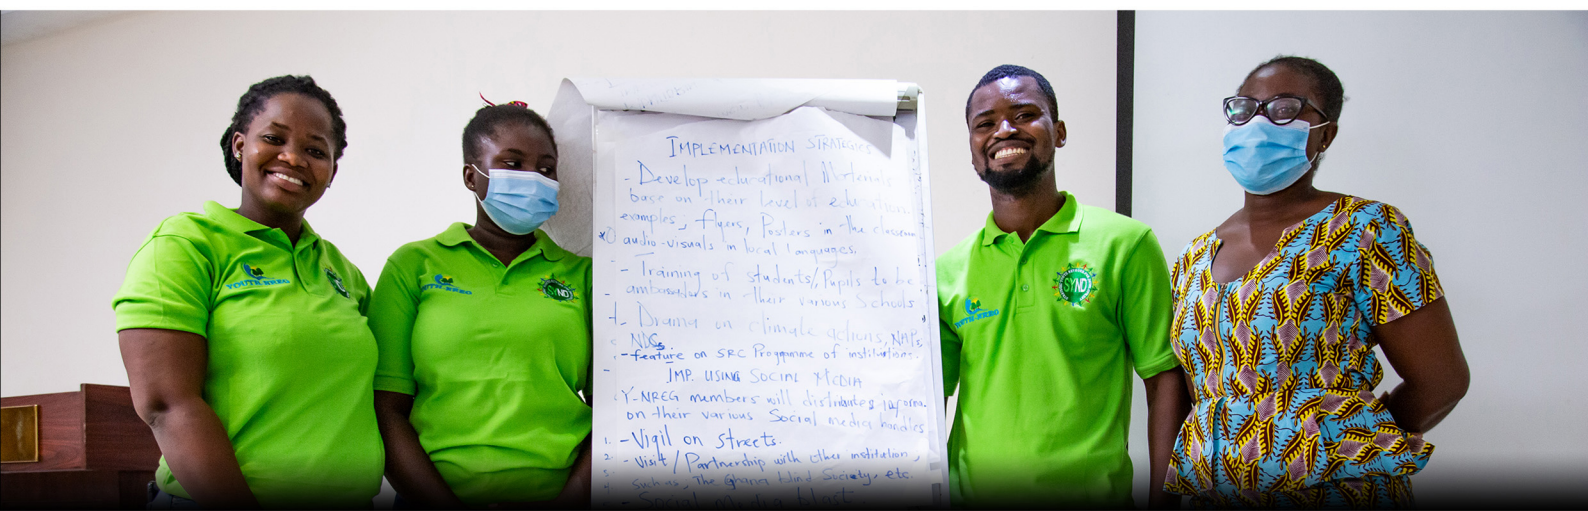 YOUTH-NREG
YOUTH-NREG
SYND
IMPLEMENTATION STRATEGIES
- Develop educational Materials
base on their level of education
examples, flyers, Posters in the classroom
audio-visuals in local languages.
- Training of students/Pupils to be
ambassadors in their various Schools
- Drama on climate actions, NAPs,
NDCs
- feature on SRC Programme of institutions.
IMP. USING SOCIAL MEDIA
Y-NREG members will distribute informa
on their various Social media handles
1. - Vigil on streets.
2. - Visit / Partnership with other institution,
3. such as, The Ghana Blind Society, etc.
- Social media blast
YOUTH-NREG
SYND